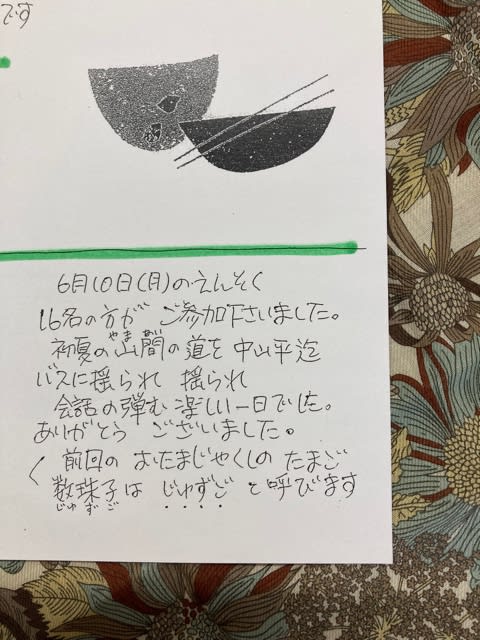 です
6月10日(月)のえんそく
16名の方が ご参加下さいました。
やま あい
初夏の山間の道を中山平迄
バスに揺られ 揺られ
会話の弾む楽しい一日でした。
ありがとう ございました。
前回の おたまじゃくしの たまご
数珠子は じゅずご と呼びます
じゅずご